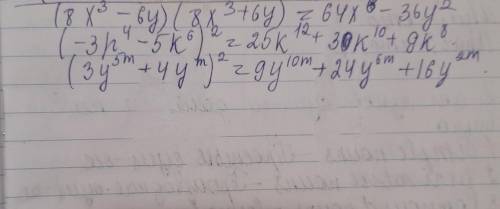 (8x³ - 6y)(8x³ + 6y) = 64x⁶ - 36y²
(-3p⁴ - 5k⁶)² = 25k¹² + 30k¹⁰ + 9k⁸.
(3y⁵ᵐ + 4yᵐ)² = 9y¹⁰ᵐ + 24y⁶ᵐ + 16y²ᵐ